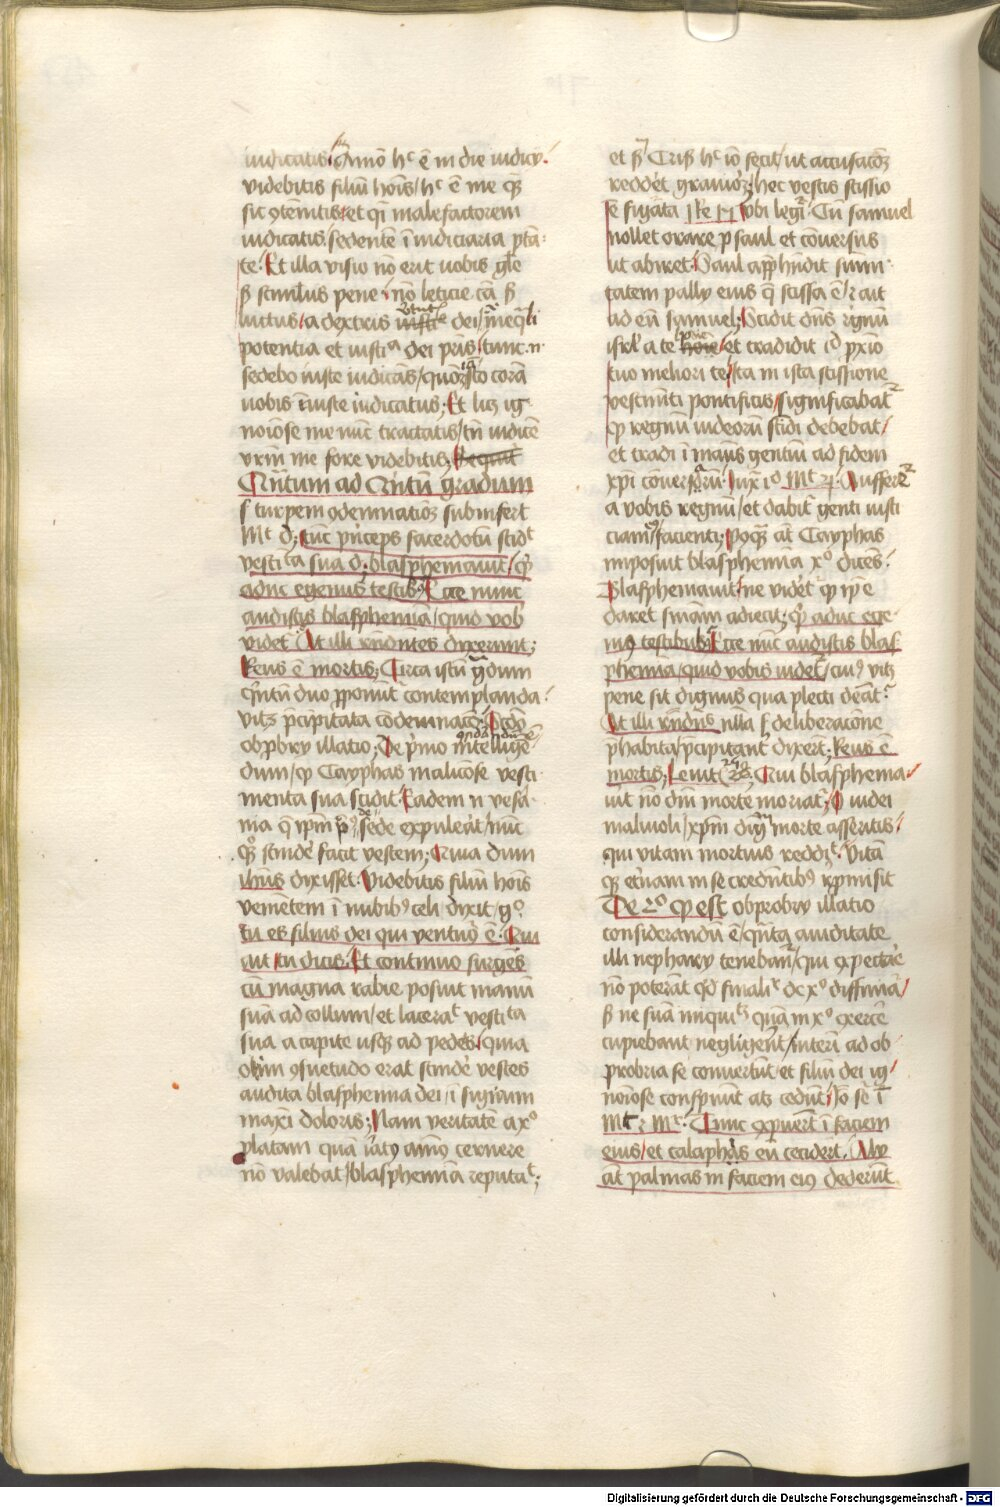 iudicatis Amō hͨ ē in die iudicy
videbitis filiū hoīs hͨ ē me
sic ꝯtēnitis et qͥ malefactorem
iudicatis sedentē ī iudiciaria ptā
te Et illa visio nō erit uobis glē
ß stimlus pene nō leticie cā ß
luctus a dextris dei
potentia et iustiᵃ dei pris tunc n
sedebo iuste iudicās corā
uobis iniuste iudicatus Et licꝫ ig
noiose me nūc tractatis tn̄ iudicē
vrm̄ me fore videbitis
Quītum ad Quītū gradum
s turpem ꝯdemnatiōꝫ subinfert
Mͭ tūc pͥnceps sacerdotū scidͭ
vestiͭᵃ sua d blasphemauit
adhuc egemꝰ testibꝰ Ecce nunc
audistis blasphemiā quid vob
videt At illi rn̄dn̄tes dixerunt
Reus ē mortis Circa istū gͣdum
qͥntū duo ꝓponūt contemplanda
vitꝫ pͥcipitata cōdemnacō Scdō
obprbry illatio De pͥmo intelligē
dum qꝫ Cayphas maliciose vesti
menta sua scidit Eadem n vesa
nia sede expulerat nūc
scinde facit vestem Quia dum
ihūs dixisset Videbitis filiū hoīs
veniētem ī nubibꝰ celi dixit gͦ
tu es filius dei qui ventuꝰ ē Qui
ait tu dicis Et continuo surgēs
cū magna rabie posuit manū
suā ad collum et laceraͭ vestiͭᵃ
sua a capite usqꝫ ad pedes quia
olim ꝯsuetudo erat scinde vestes
audita blasphemia dei ī signum
maxī doloris Nam veritatē a xͦ
platam quā cernere
nō valebat blasphemiā reputaͭ
et hͨ iō fecit ut accusacōꝫ
reddēt grauioꝫ hec vestis scissio
ē figata vbi legiͭ Cū samuel
nollet orare ꝓ saul et cōuersus
ut abiret Saul appͤhndit sūmi
tatem pally eius q scissa ē ait
ad eū samuel Scidit dn̄s regnū
isrl a te et tradidit iͩ ꝓxīo
tuo meliori te Ita in ista scissione
vestimēti pontificis significabatͬ
ꝙ regnū iudeorū scīdi debebat
et tradi ī man̄s gentiū ad fidem
xp̄i cōuersarū Iuxͣ iͩ Mͭ Auffereͭ
a vobis regnū et dabitͬ genti iusti
ciam facienti Postqͣ at Cayphas
imposuit blasphemiā xͦ dicēs
Blasphemauit ne videt ꝙ ip̄e
daret sniam adiecit adhuc ege
mꝰ testibus Ecce nūc audistis blas
phemia quid vobis videt cuiꝰ vitꝫ
pene sit dignus qua plecti deat
At illi rn̄dn̄s nulla s deliberacōne
phabita pͥcipitant dixert Reus ē
mortis Leuit Qui blasphema
uit nō dm̄ morte moriatͬ O iudei
maliuoli xp̄m morte asseritis
qui vitam mortuis reddꝫ Vitā
qꝫ etnam in se credentibꝰ rpmisit
De ꝙ est obprobry illatio
considerandū ē quāta auiditate
illi nephary tenebant qui expectāe
nō poterāt qd finaliͬ de xͦ diffinia
ß ne suā iniquiͭꝫ quā in xͦ exercē
cupiebant negligerit interī ad ob
probria se conuertūt et filiū dei ig
noiose conspuūt atqꝫ cedūt Iō sͤ ī
Mͭ Mͨ Tunc expuerūt ī faciem
eius et calaphis eū ceciderūt Aly
at palmas in faciem eiꝰ dederūt
Digitalisierung gefördert durch die Deutsche Forschungsgemeinschaft - DFG